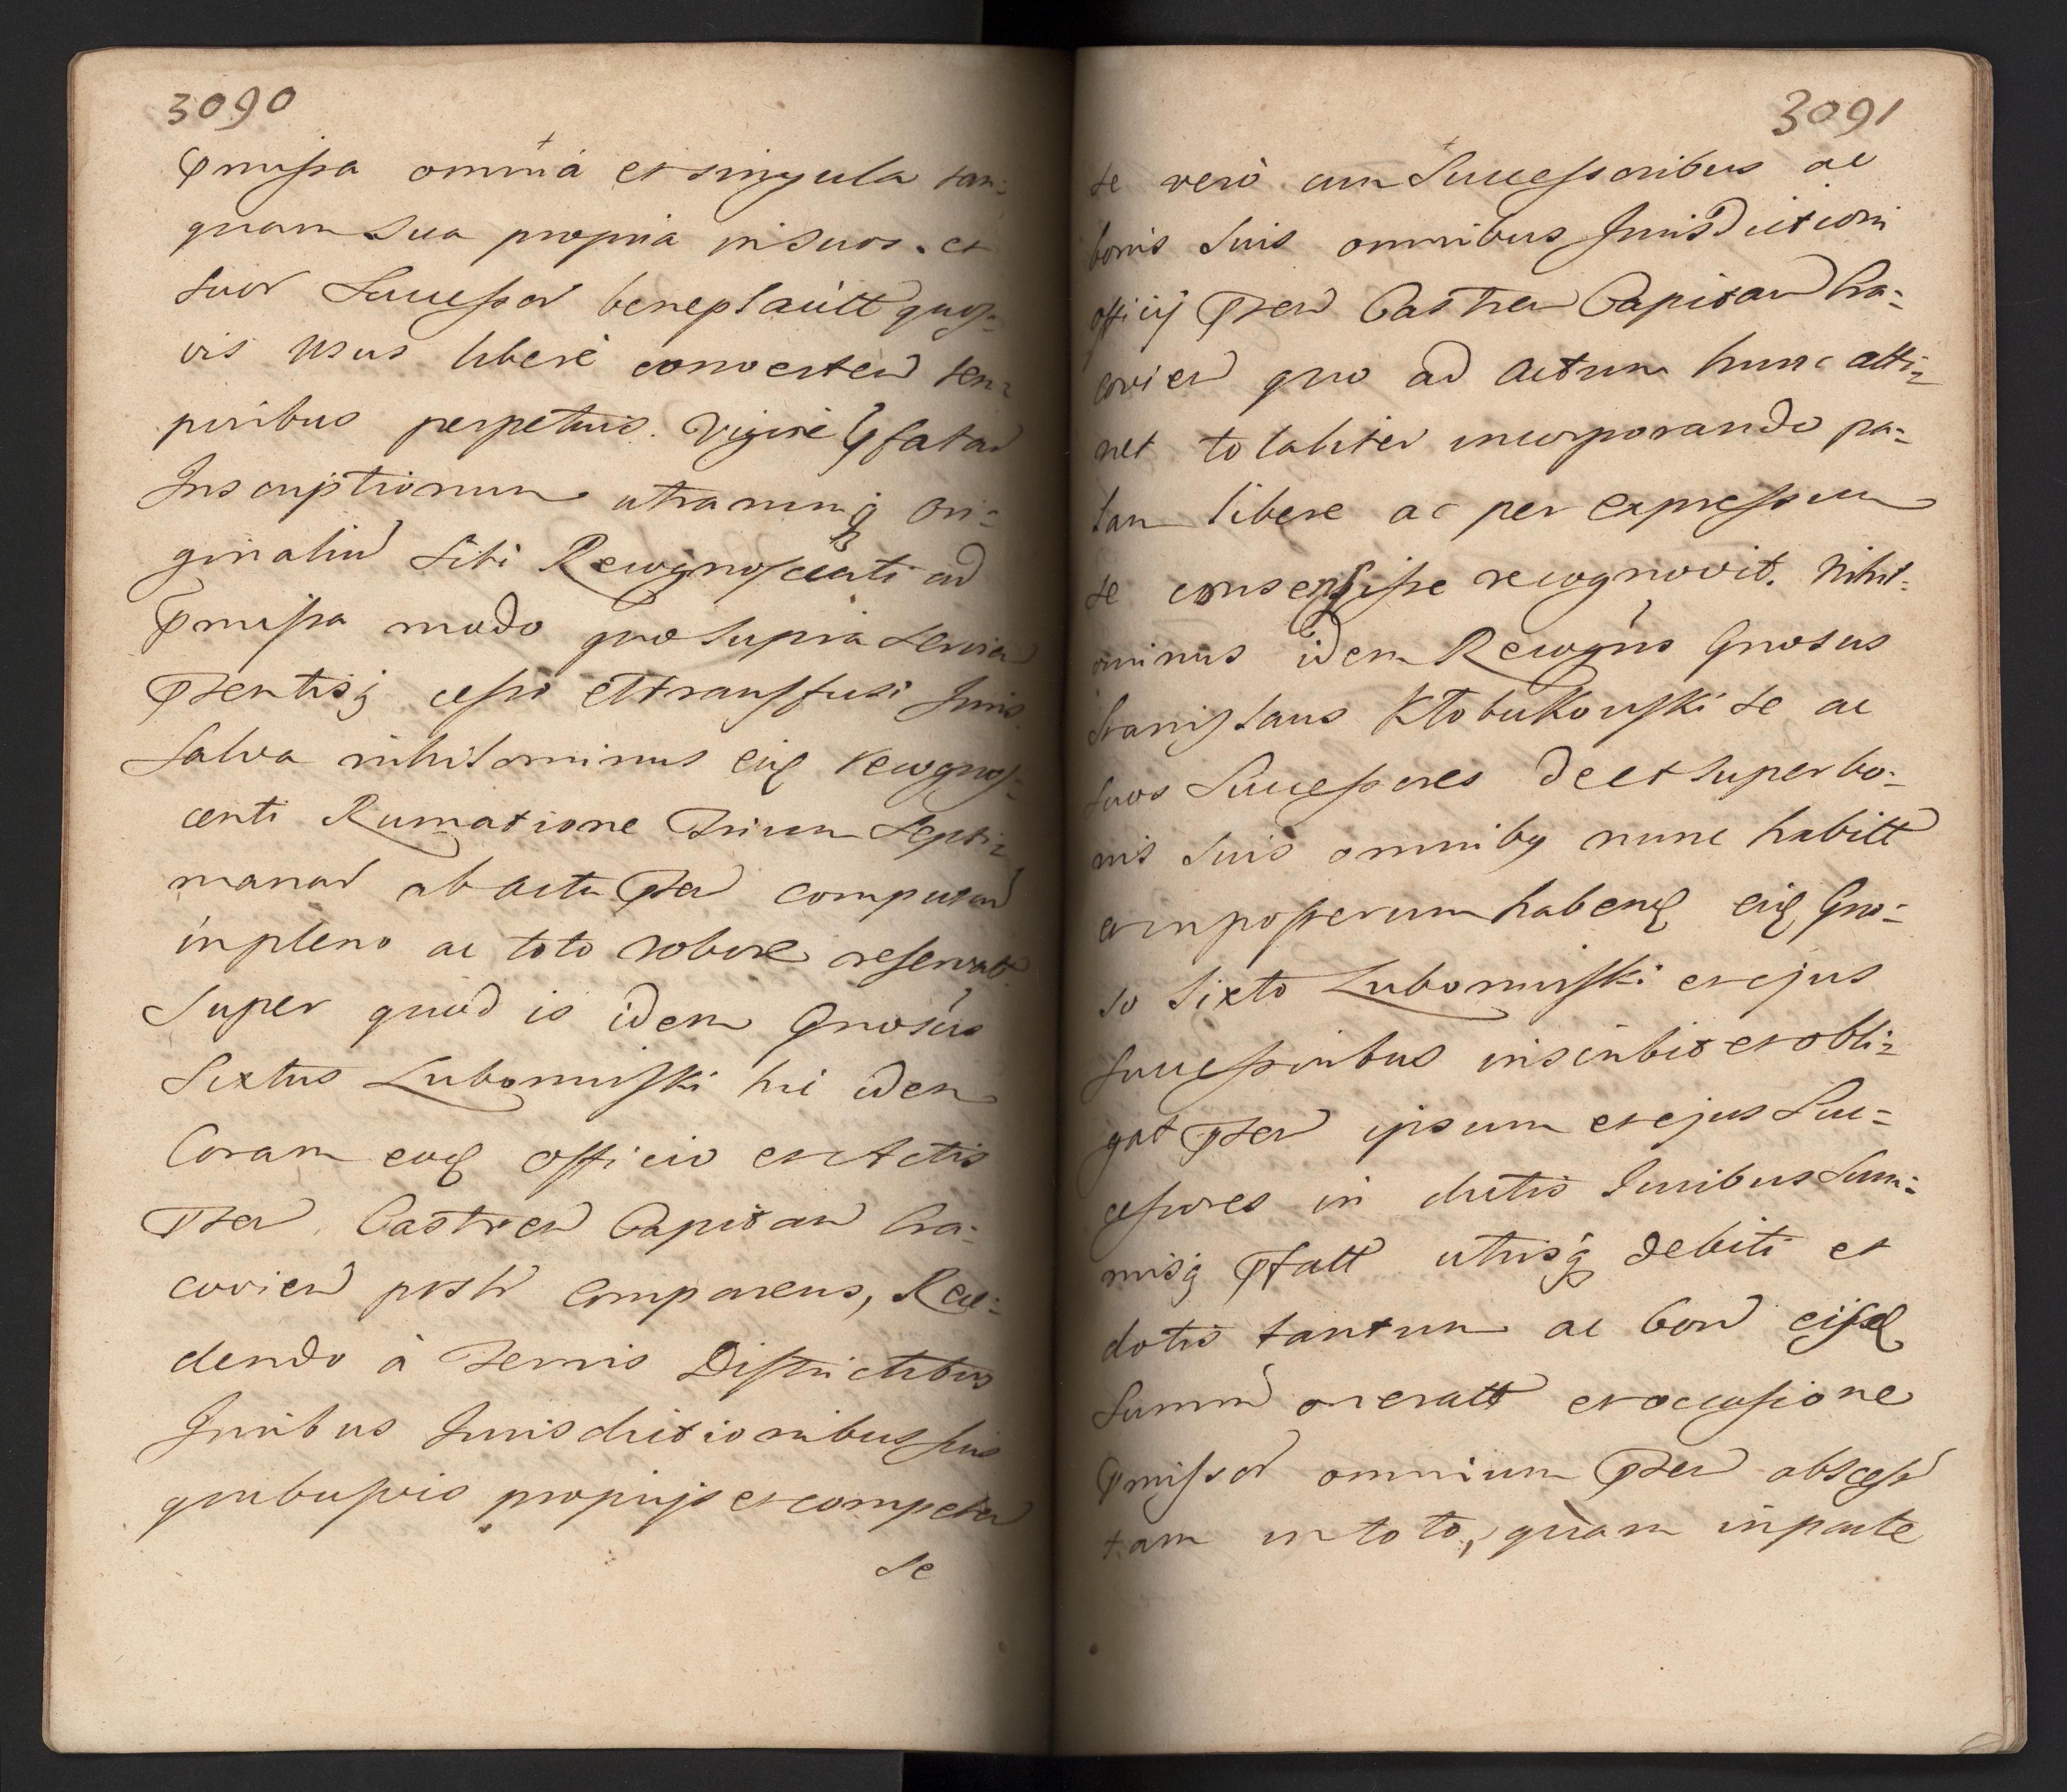 3090
pmissa omnia et singula tan=
quam sua propria in suos et
suor Successor beneplacitt quos=
vis usus libere converten tem=
poribus perpetuis. Vigore pfatar
Inscriptionum utrarumq ori=
ginaliu sibi Recognoscenti ad
pmissa modo quo supra servien
psentisq cessi et transfusi Juris
salva nihilominus eid Recognos=
centi Rumatione trium Septi=
manar ab actu psen computan
in pleno ac toto robore reservatt
Super quod is idem Gnosus
Sixtus Lubomirski hic idem
Coram eod officio et Actis
psen Castren Capitan Cra=
covien psolr comparens, Rece=
dendo à terris Districtibus
Juribus Jurisdictionibus suis
quibusvis proprijs et competen
se
3091
se vero cum Successoribus ac
bonis suis omnibus Jurisdictioni
officij psen Castren Capitan Cra=
covien quo ad actum hunc atti=
net totaliter incorporando pa=
lam libere ac per expressum
se consensisse recognovit. Nihil=
ominus idem Recogns Gnosus
Stanislaus Kłobukowski se ac
suos Successores de et super bo=
nis suis omnibq nunc habitt
et in posterum habend eid Gno=
so Sixto Lubomirski et ejus
Successoribus inscribit et obli=
gat psen ipsum et ejus Suc=
cessores in dictis Juribus Sum=
misq pfatt utrisq debiti et
dotis tantum ac bon eisd
Summ oneratt et occasione
pmissor omnium psen abscess
tam in toto, quam in parte